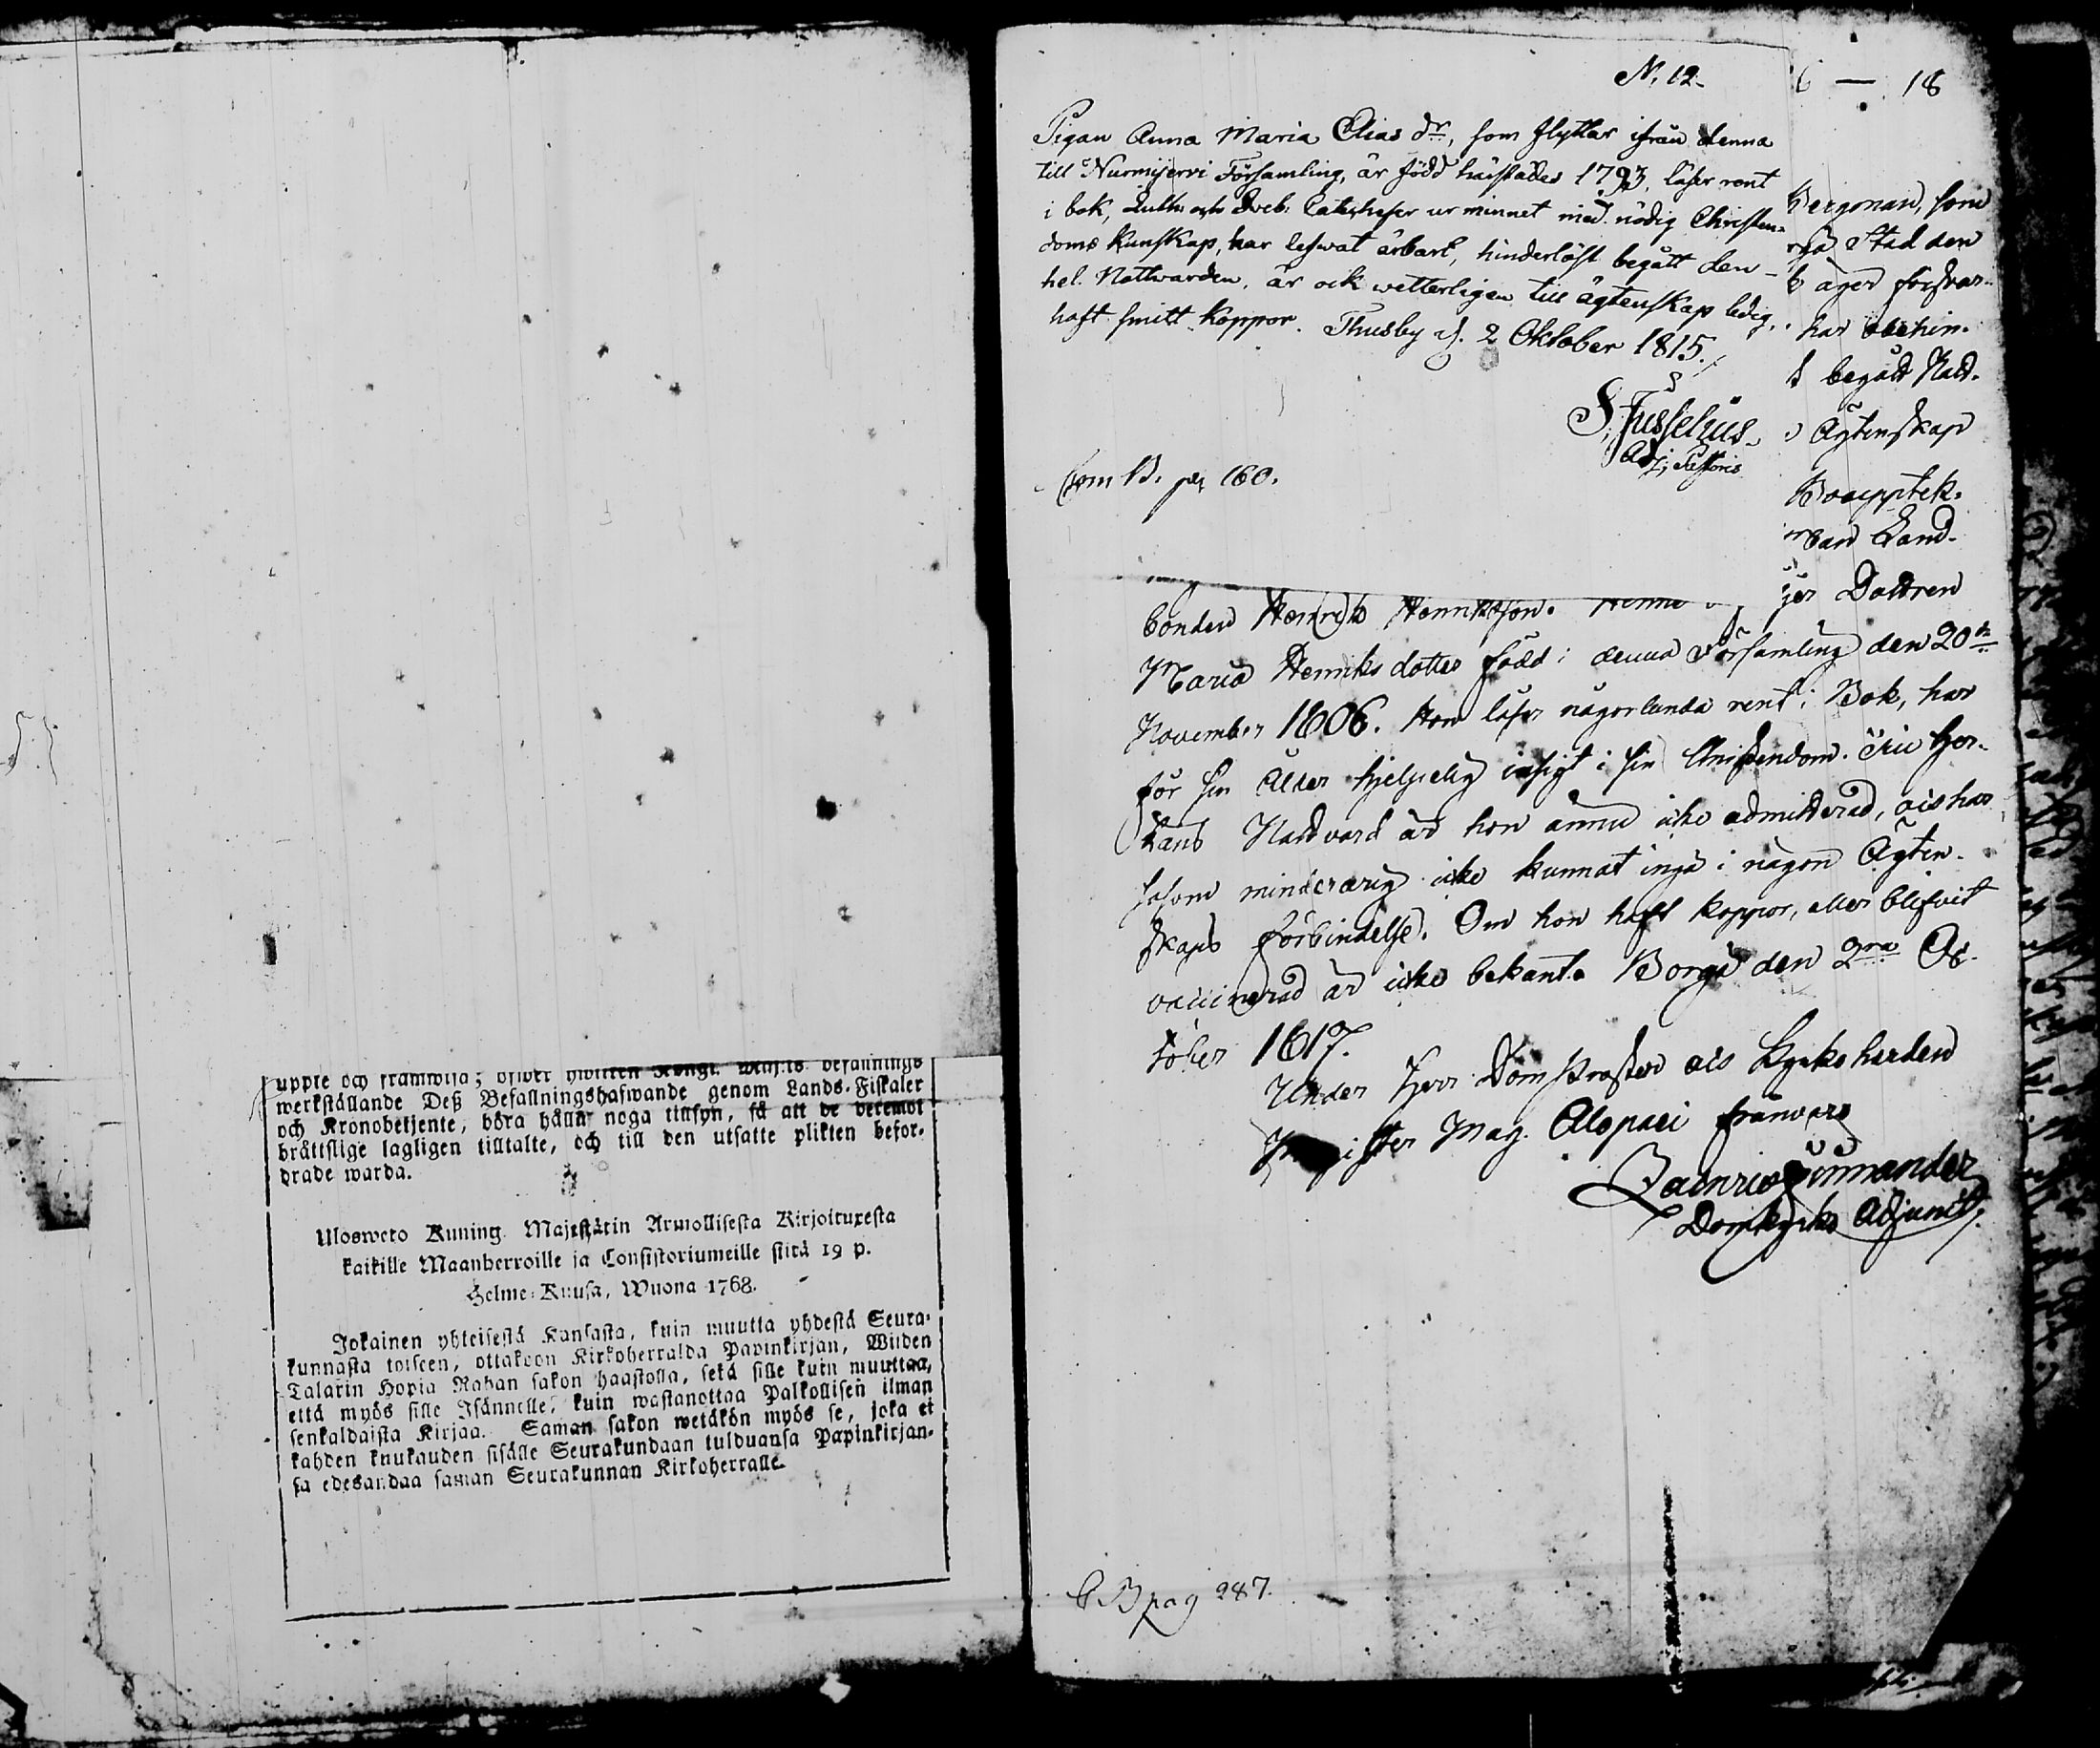 uppte och framwisa; öfwer hwilken Kongl. Maj:ts Befallnings
werkställande Deß Befallningshafwande genom Lands-Fiskaler
och Kronobetjente, böra hålla noga tillsyn, så att de deremot
bråttslige lagligen tilltalte, och till den utsatte plikten befor-
drade warda.
Ulosweto Kuning. Majestätin Armollisesta Kirjoituxesta
kaikille Maanherroille ja Consistoriumeille siitä 19 p.
Helme-Kuusa, Wuona 1768.
Jokainen yhteisestä Kansasta, kuin muutta yhdestä Seura-
kunnasta toiseen, ottakoon Kirkoherralda Papinkirjan, Wiiden
Talarin Hopia Rahan sakon haastolla, sekä sille kuin muuttaa,
että myös sille Isännelle, kuin wastanottaa Palkollisen ilman
senkaldaista Kirjaa. Saman sakon wetäkön myös se, joka ei
kahden kuukauden sisälle Seurakundaan tulduansa Papinkirjan-
sa edesandaa saman Seurakunnan Kirkoherralle.
N. 12.
Pigan Anna Maria Elias dr, som flyttar ifrån denna
till Nurmijervi Församling, är född härstädes 1793, läser rent
i bok, Luth: och Sveb: Catecheser ur minnet med nödig Christen-
doms Kunskap, har lefwat ärbart, hinderlöst begått den
hel. Nattwarden, är ock wetterligen till ägtenskap ledig,
haft smitt koppor. Thusby d. 2 Oktober 1815.
S. Fusselius
Adj. Pastoris
Com B. pag 160.
6 — 18
Bergman, som
rgå Stad den
äger försvar-
har obehin-
t begådt Natt-
Ägtenskap
Land-
ger Dottren
bonden Henrich Henriksson.
Maria Henriks dotter född i denna Församling den 20de
November 1806. Hon läser någorlunda rent i Bok, har
för sin ålder hjelpelig insigt i sin Christendom. Till Her-
rans Nattvard är hon ännu icke admitterad, och har
såsom minderårig icke kunnat ingå i någon Ägten-
skaps förbindelse. Om hon haft koppor, eller blifvit
vaccinerad är icke bekant. Borgå den 2dra Oc-
tober 1817.
Under Herr Domprosten och Kyrkoherden
Mag. Alopaei frånvaro
Domkyrko Adjunct.
C B pag 287.